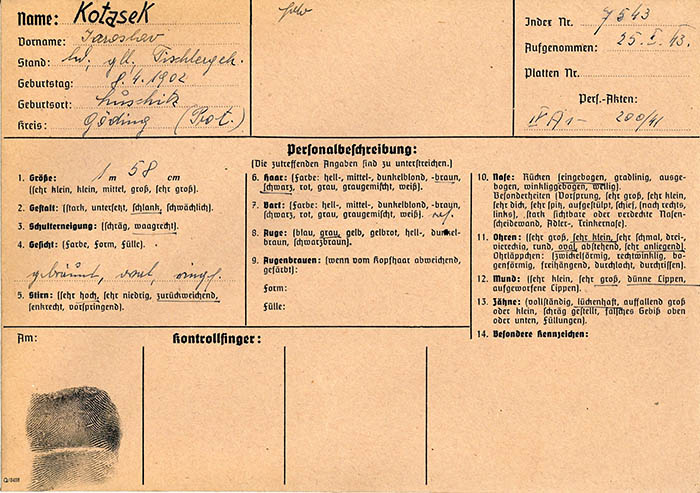 Name: Kotásek
Vorname: Jaroslav
Stand: led. gil. Tischlergeh.
Geburtstag: 8. 4. 1902
Geburtsort: Luschitz
Kreis: Göding (Prot.)
Index Nr. 7543
Aufgenommen: 25. I. 43.
Platten Nr.
Pers.-Akten:
IV A 1 - 200/41
Personalbeschreibung:
(Die zutreffenden Angaben sind zu unterstreichen.)
1. Größe: 1 m 58 cm
(sehr klein, klein, mittel, groß, sehr groß).
2. Gestalt: (stark, untersetzt, schlank, schwächlich).
3. Schulterneigung: (schräg, waagrecht).
4. Gesicht: (Farbe, Form, Fülle).
gebräunt, oval,
5. Stirn: (sehr hoch, sehr niedrig, zurückweichend,
senkrecht, vorspringend).
6. Haar: (Farbe: hell-, mittel-, dunkelblond, -braun,
schwarz, rot, grau, graugemischt, weiß).
7. Bart: (Farbe: hell-, mittel-, dunkelblond, -braun,
schwarz, rot, grau, graugemischt, weiß).
8. Auge: (blau, grau, gelb, gelbrot, hell-, dunkel-
braun, schwarzbraun).
9. Augenbrauen: (wenn vom Kopfhaar abweichend,
gefärbt):
Form:
Fülle:
10. Nase: Rücken (eingebogen, gradlinig, ausge-
bogen, winkliggebogen, wellig).
Besonderheiten (Vorsprung, sehr groß, sehr klein,
sehr dick, sehr spitz, aufgestülpt, schief, (nach rechts,
links), stark sichtbare oder verdeckte Nasen-
scheidewand, Adler-, Trinkernase).
11. Ohren: (sehr groß, sehr klein, sehr schmal, drei-,
viereckig, rund, oval, abstehend, sehr anliegend).
Ohrläppchen: (zwickelförmig, rechtwinklig, bo-
genförmig, freihängend, durchlocht, durchrissen).
12. Mund: (sehr klein, sehr groß, dünne Lippen,
aufgeworfene Lippen).
13. Zähne: (vollständig, lückenhaft, auffallend groß
oder klein, schräg gestellt, falsches Gebiß oben
oder unten, Füllungen).
14. Besondere Kennzeichen:
Am:
Kontrollfinger: